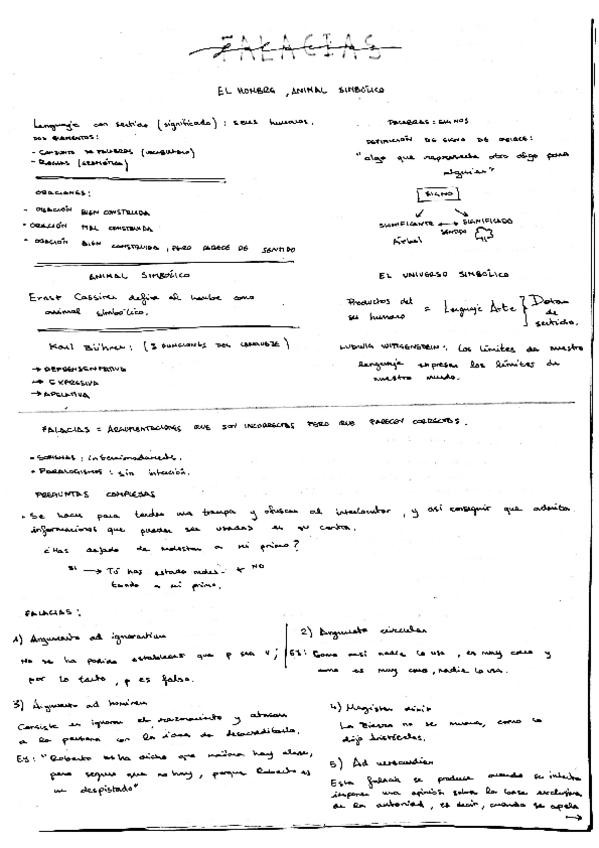 FALACIAS
EL HOMBRE, ANIMAL SIMBÓLICO
Lenguaje con sentido (significado): seres humanos.
DOS ELEMENTOS:
- CONJUNTO DE PALABRAS (VOCABULARIO)
- REGLAS (GRAMÁTICA)
ORACIONES:
- ORACIÓN BIEN CONSTRUIDA
- ORACIÓN MAL CONSTRUIDA
- ORACIÓN BIEN CONSTRUIDA, PERO CARECE DE SENTIDO
PALABRAS: SIGNOS
DEFINICIÓN DE SIGNO DE PEIRCE:
"algo que representa otro algo para
alguien"
SIGNO
SIGNIFICANTE ↔ SIGNIFICADO
SENTIDO
Árbol
ANIMAL SIMBÓLICO
Ernst Cassirer define al hombre como
animal simbólico.
Karl Bühler: (3 FUNCIONES DEL LENGUAJE)
→ REPRESENTATIVA
→ EXPRESIVA
→ APELATIVA
EL UNIVERSO SIMBÓLICO
Productos del
ser humano = Lenguaje Arte } Dotan
de
sentido.
LUDWIG WITTGENSTEIN: Los límites de nuestro
lenguaje expresan los límites de
nuestro mundo.
FALACIAS = ARGUMENTACIONES QUE SON INCORRECTAS PERO QUE PARECEN CORRECTAS.
• SOFISMAS: intencionadamente.
• PARALOGISMOS: sin intención.
PREGUNTAS COMPLEJAS
• Se hacen para tender una trampa y ofuscar al interlocutor, y así conseguir que admita
informaciones que pueden ser usadas en su contra.
¿Has dejado de molestar a mi primo?
SI → Tú has estado moles- ← NO
tando a mi primo.
FALACIAS:
1) Argumento ad ignorantiam
No se ha podido establecer que p sea V;
por lo tanto, p es falso.
2) Argumento circular
EJ: Como casi nadie lo usa, es muy caro y
como es muy caro, nadie lo usa.
3) Argumento ad hominem
Consiste en ignorar el razonamiento y atacar
a la persona con la idea de desacreditarlo.
Ej: "Roberto ha dicho que mañana hay clase,
pero seguro que no hay, porque Roberto es
un despistado"
4) Magister dixit
La Tierra no se mueve, como ya
dijo Aristóteles.
5) Ad verecundiam
Esta falacia se produce cuando se intenta
imponer una opinión sobre la base exclusiva
de la autoridad, es decir, cuando se apela
→